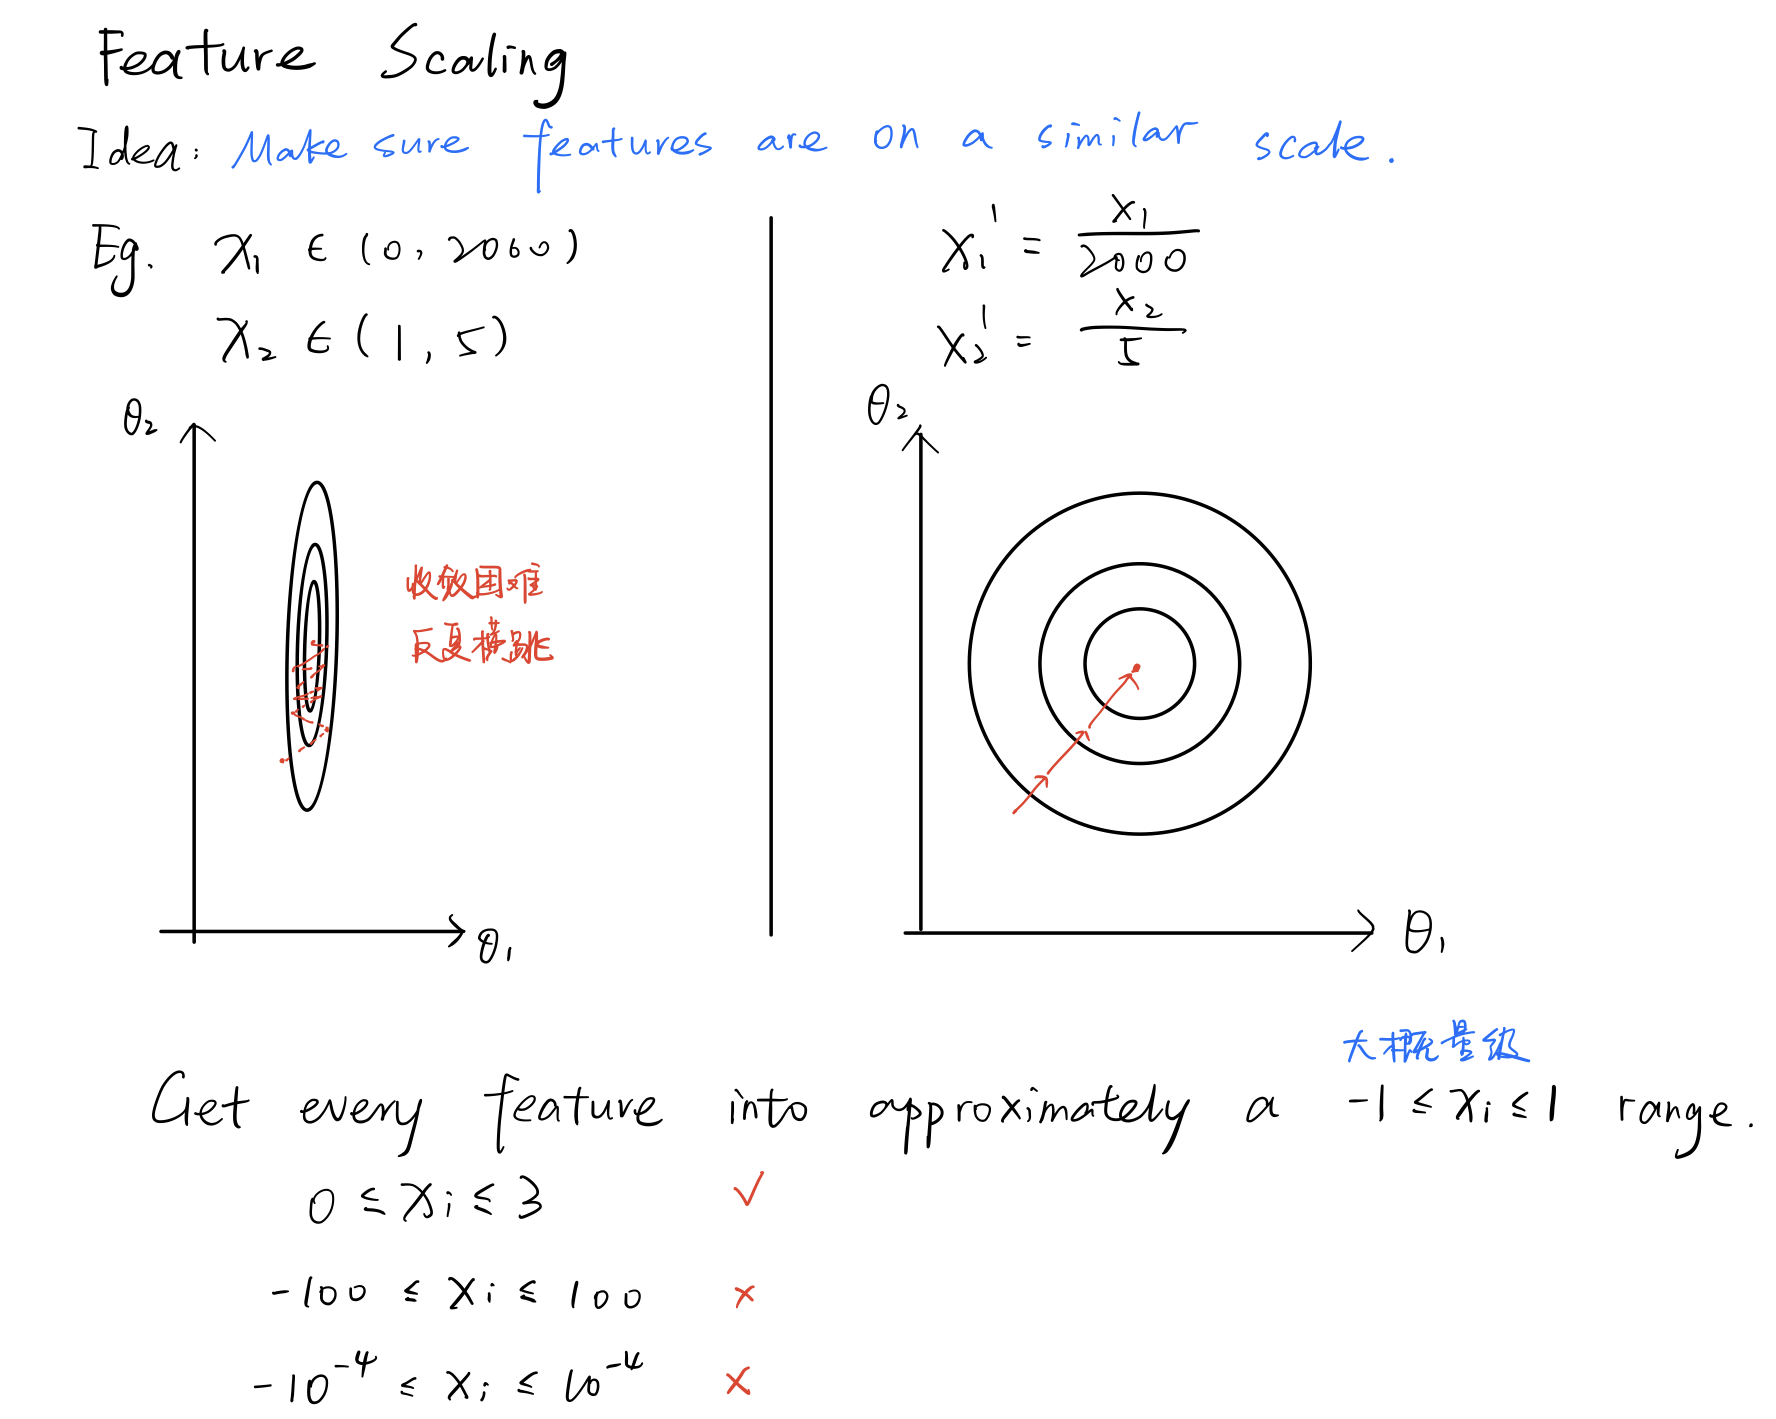 Feature Scaling
Idea: Make sure features are on a similar scale.
Eg. x₁ ∈ (0, 2000)
x₂ ∈ (1, 5)
x₁' = x₁/2000
x₂' = x₂/5
θ₂
收敛困难
反复横跳
θ₁
θ₂
θ₁
大概量级
Get every feature into approximately a -1 ≤ xᵢ ≤ 1 range.
0 ≤ xᵢ ≤ 3 ✓
-100 ≤ xᵢ ≤ 100 ×
-10⁻⁴ ≤ xᵢ ≤ 10⁻⁴ ×